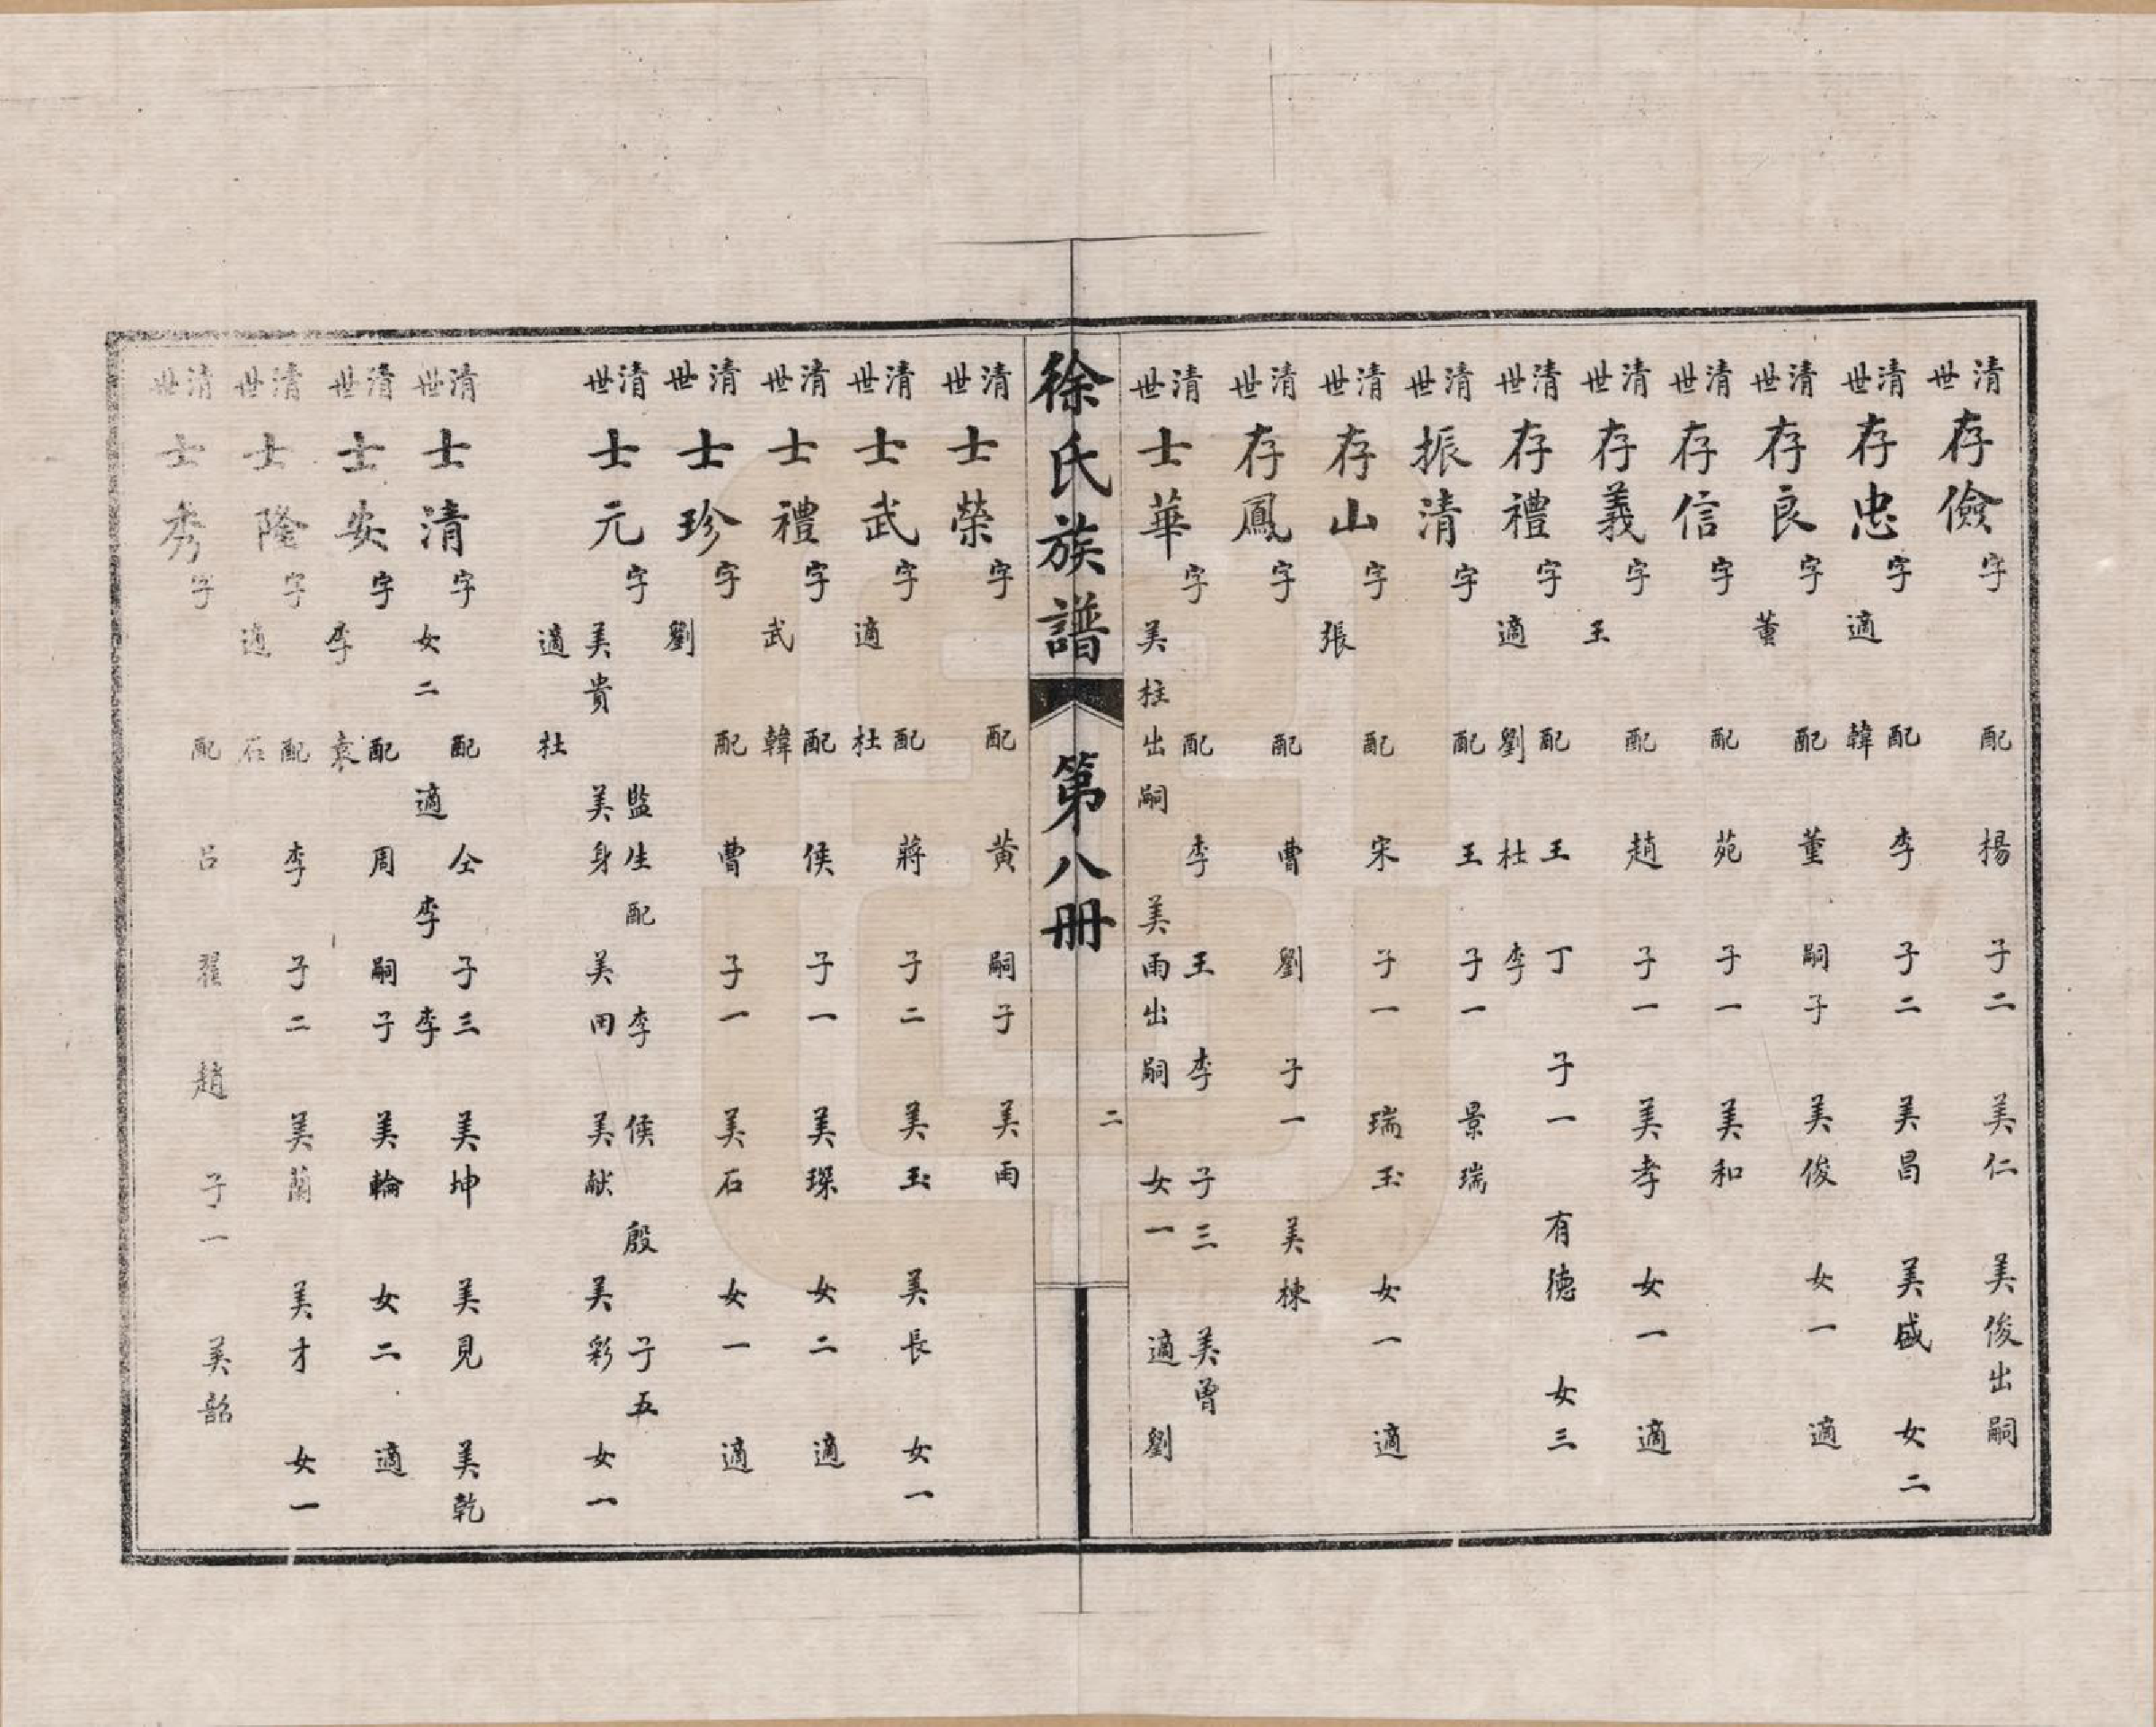 清世存儉字 配 楊 子二 美仁 美俊出嗣
清世存忠字 配 李 子二 美昌 美盛 女二
適 韓
清世存良字 配 董 嗣子 美俊 女一 適
董
清世存信字 配 苑 子一 美和
清世存義字 配 趙 子一 美孝 女一 適
王
清世存禮字 配 王 丁 子一 有德 女三
適 劉 杜 李
清世振清字 配 王 子一 景瑞
清世存山字 配 宋 子一 瑞玉 女一 適
張
清世存鳳字 配 曹 劉 子一 美棟
清世士華字 配 李 王 李 子三 美曾
美柱出嗣 美雨出嗣 女一 適 劉
徐氏族譜 第八冊 二
清世士榮字 配 黄 嗣子 美雨
清世士武字 配 蔣 子二 美玉 美長 女一
適 杜
清世士禮字 配 侯 子一 美琛 女二 適
武 韓
清世士珍字 配 曹 子一 美石 女一 適
劉
清世士元字 監生配 李 侯 殷 子五
美貴 美身 美田 美献 美彩 女一
適 杜
清世士清字 配 仝 子三 美坤 美見 美乾
女二 適 李 李
清世士安字 配 周 嗣子 美輪 女二 適
李 袁
清世士隆字 配 李 子二 美蘭 美才 女一
適 石
清世士秀字 配 呂 翟 趙 子一 美韶